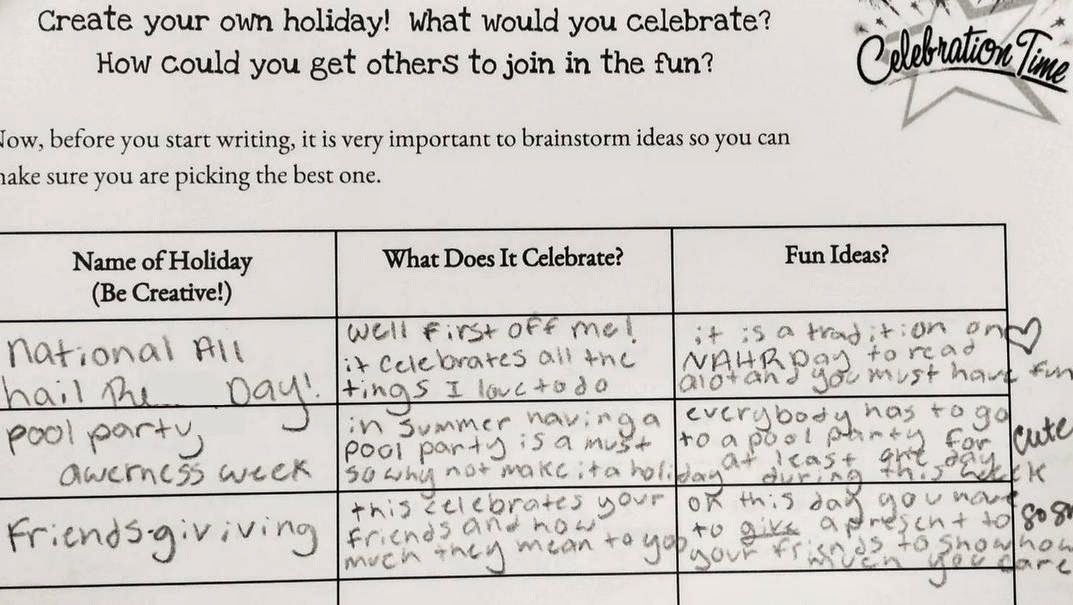 Create your own holiday! What would you celebrate?
How could you get others to join in the fun?
Celebration Time
Now, before you start writing, it is very important to brainstorm ideas so you can
make sure you are picking the best one.
Name of Holiday
(Be Creative!)
What Does It Celebrate?
Fun Ideas?
National All
hail the Day!
well first off me!
it celebrates all the
tings I love to do
it is a tradition on
NAHR Day to read
alot and you must have fun
pool party
awerness week
in summer having a
pool party is a must
so why not make it a holiday
everybody has to go
to a pool party for
at least one day
during this week
cute
Friends-giviving
this celebrates your
friends and how
much they mean to you
on this day you have
to give a present to
your friends to show how
much you care
so